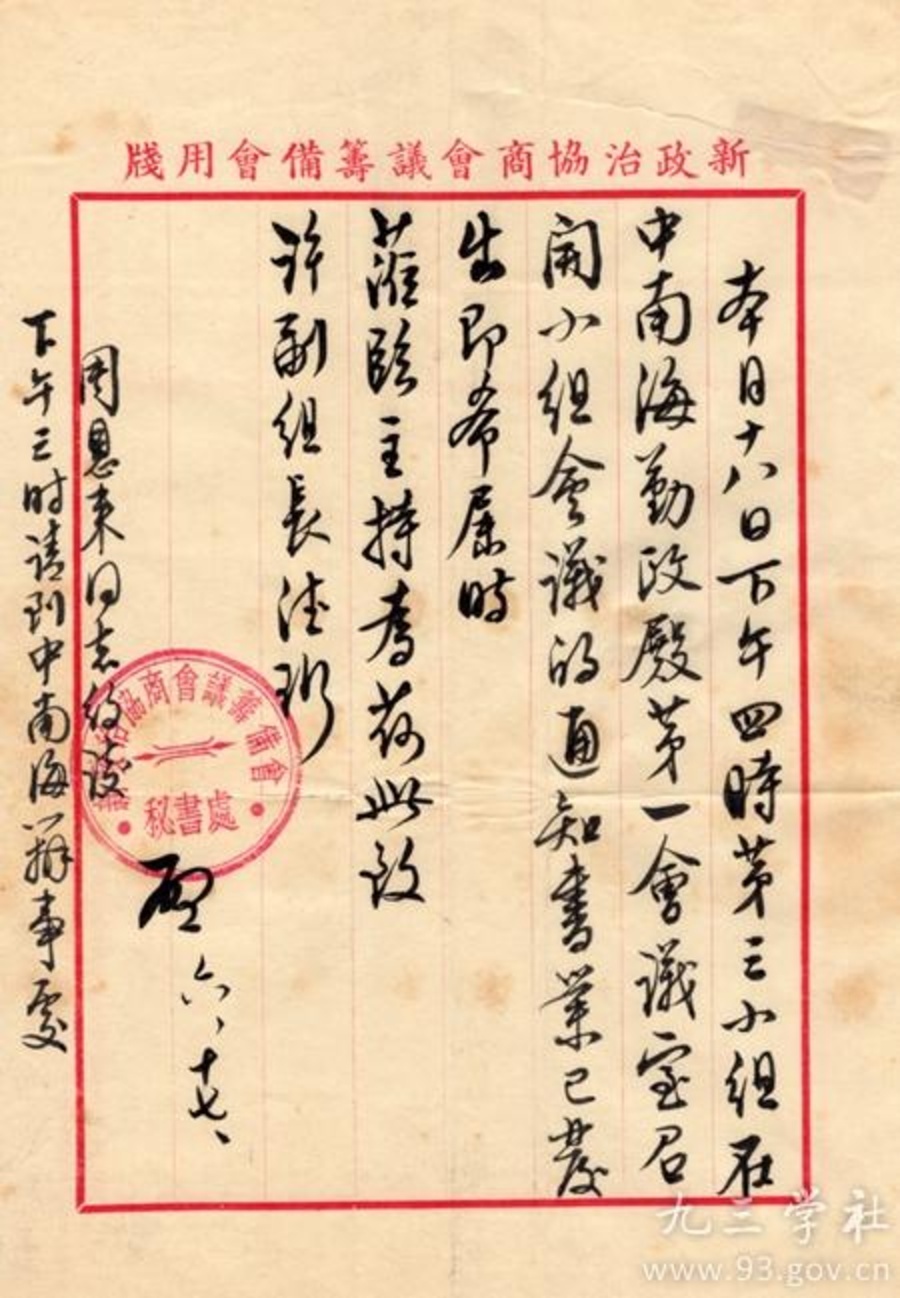 新政治協商會議籌備會用牋
本月十八日下午四時苐三小组在
中南海勤政殿苐一會議室召
開小组會議的通知書業已發
出即希届時
蒞臨主持为荷此致
許副组長德珩
啟 六、十七、
周恩来同志约谈
下午三时请到中南海办事處
治協商會議籌備會
秘書處
九三学社
www.93.gov.cn